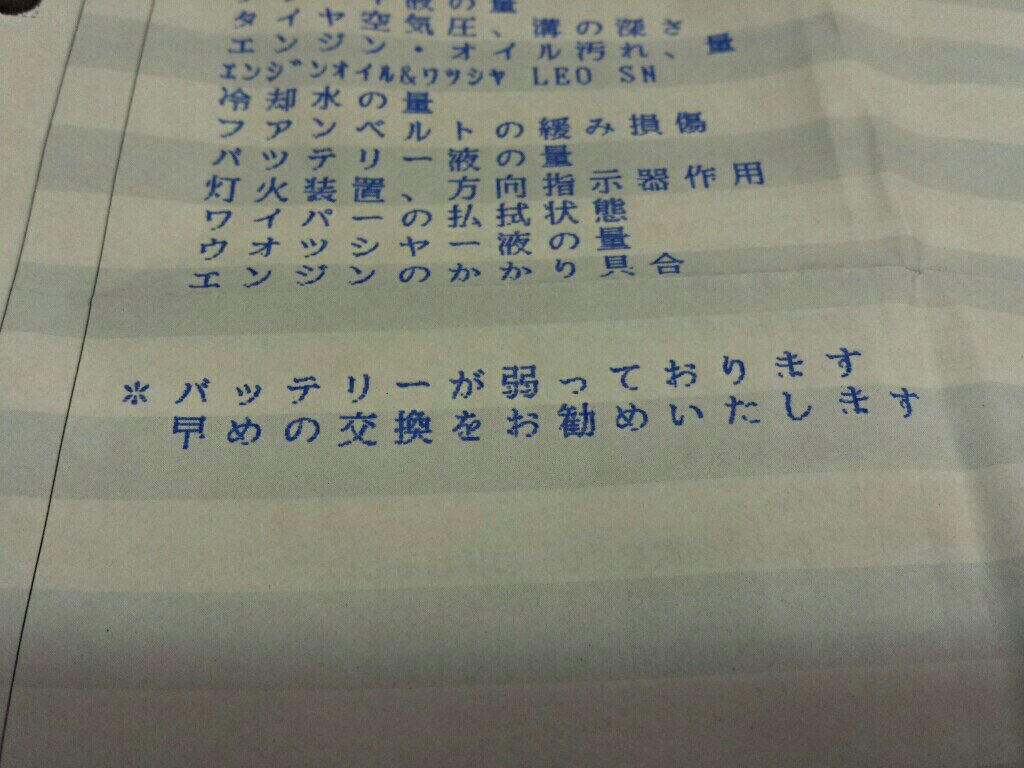 液の量
タイヤ空気圧、溝の深さ
エンジン・オイル汚れ、量
ｴﾝｼﾞﾝｵｲﾙ&ﾜｯｼｬ LEO SN
冷却水の量
フアンベルトの緩み損傷
バツテリー液の量
灯火装置、方向指示器作用
ワイパーの払拭状態
ウオツシヤー液の量
エンジンのかかり具合
※バッテリーが弱っております
早めの交換をお勧めいたします